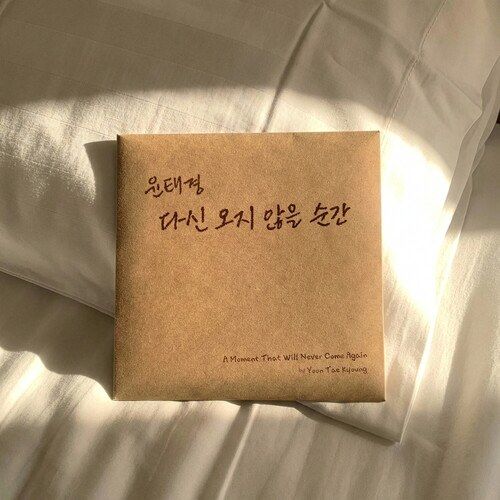 윤태경
다신 오지 않을 순간
A Moment That Will Never Come Again
by Yoon Tae Kyoung